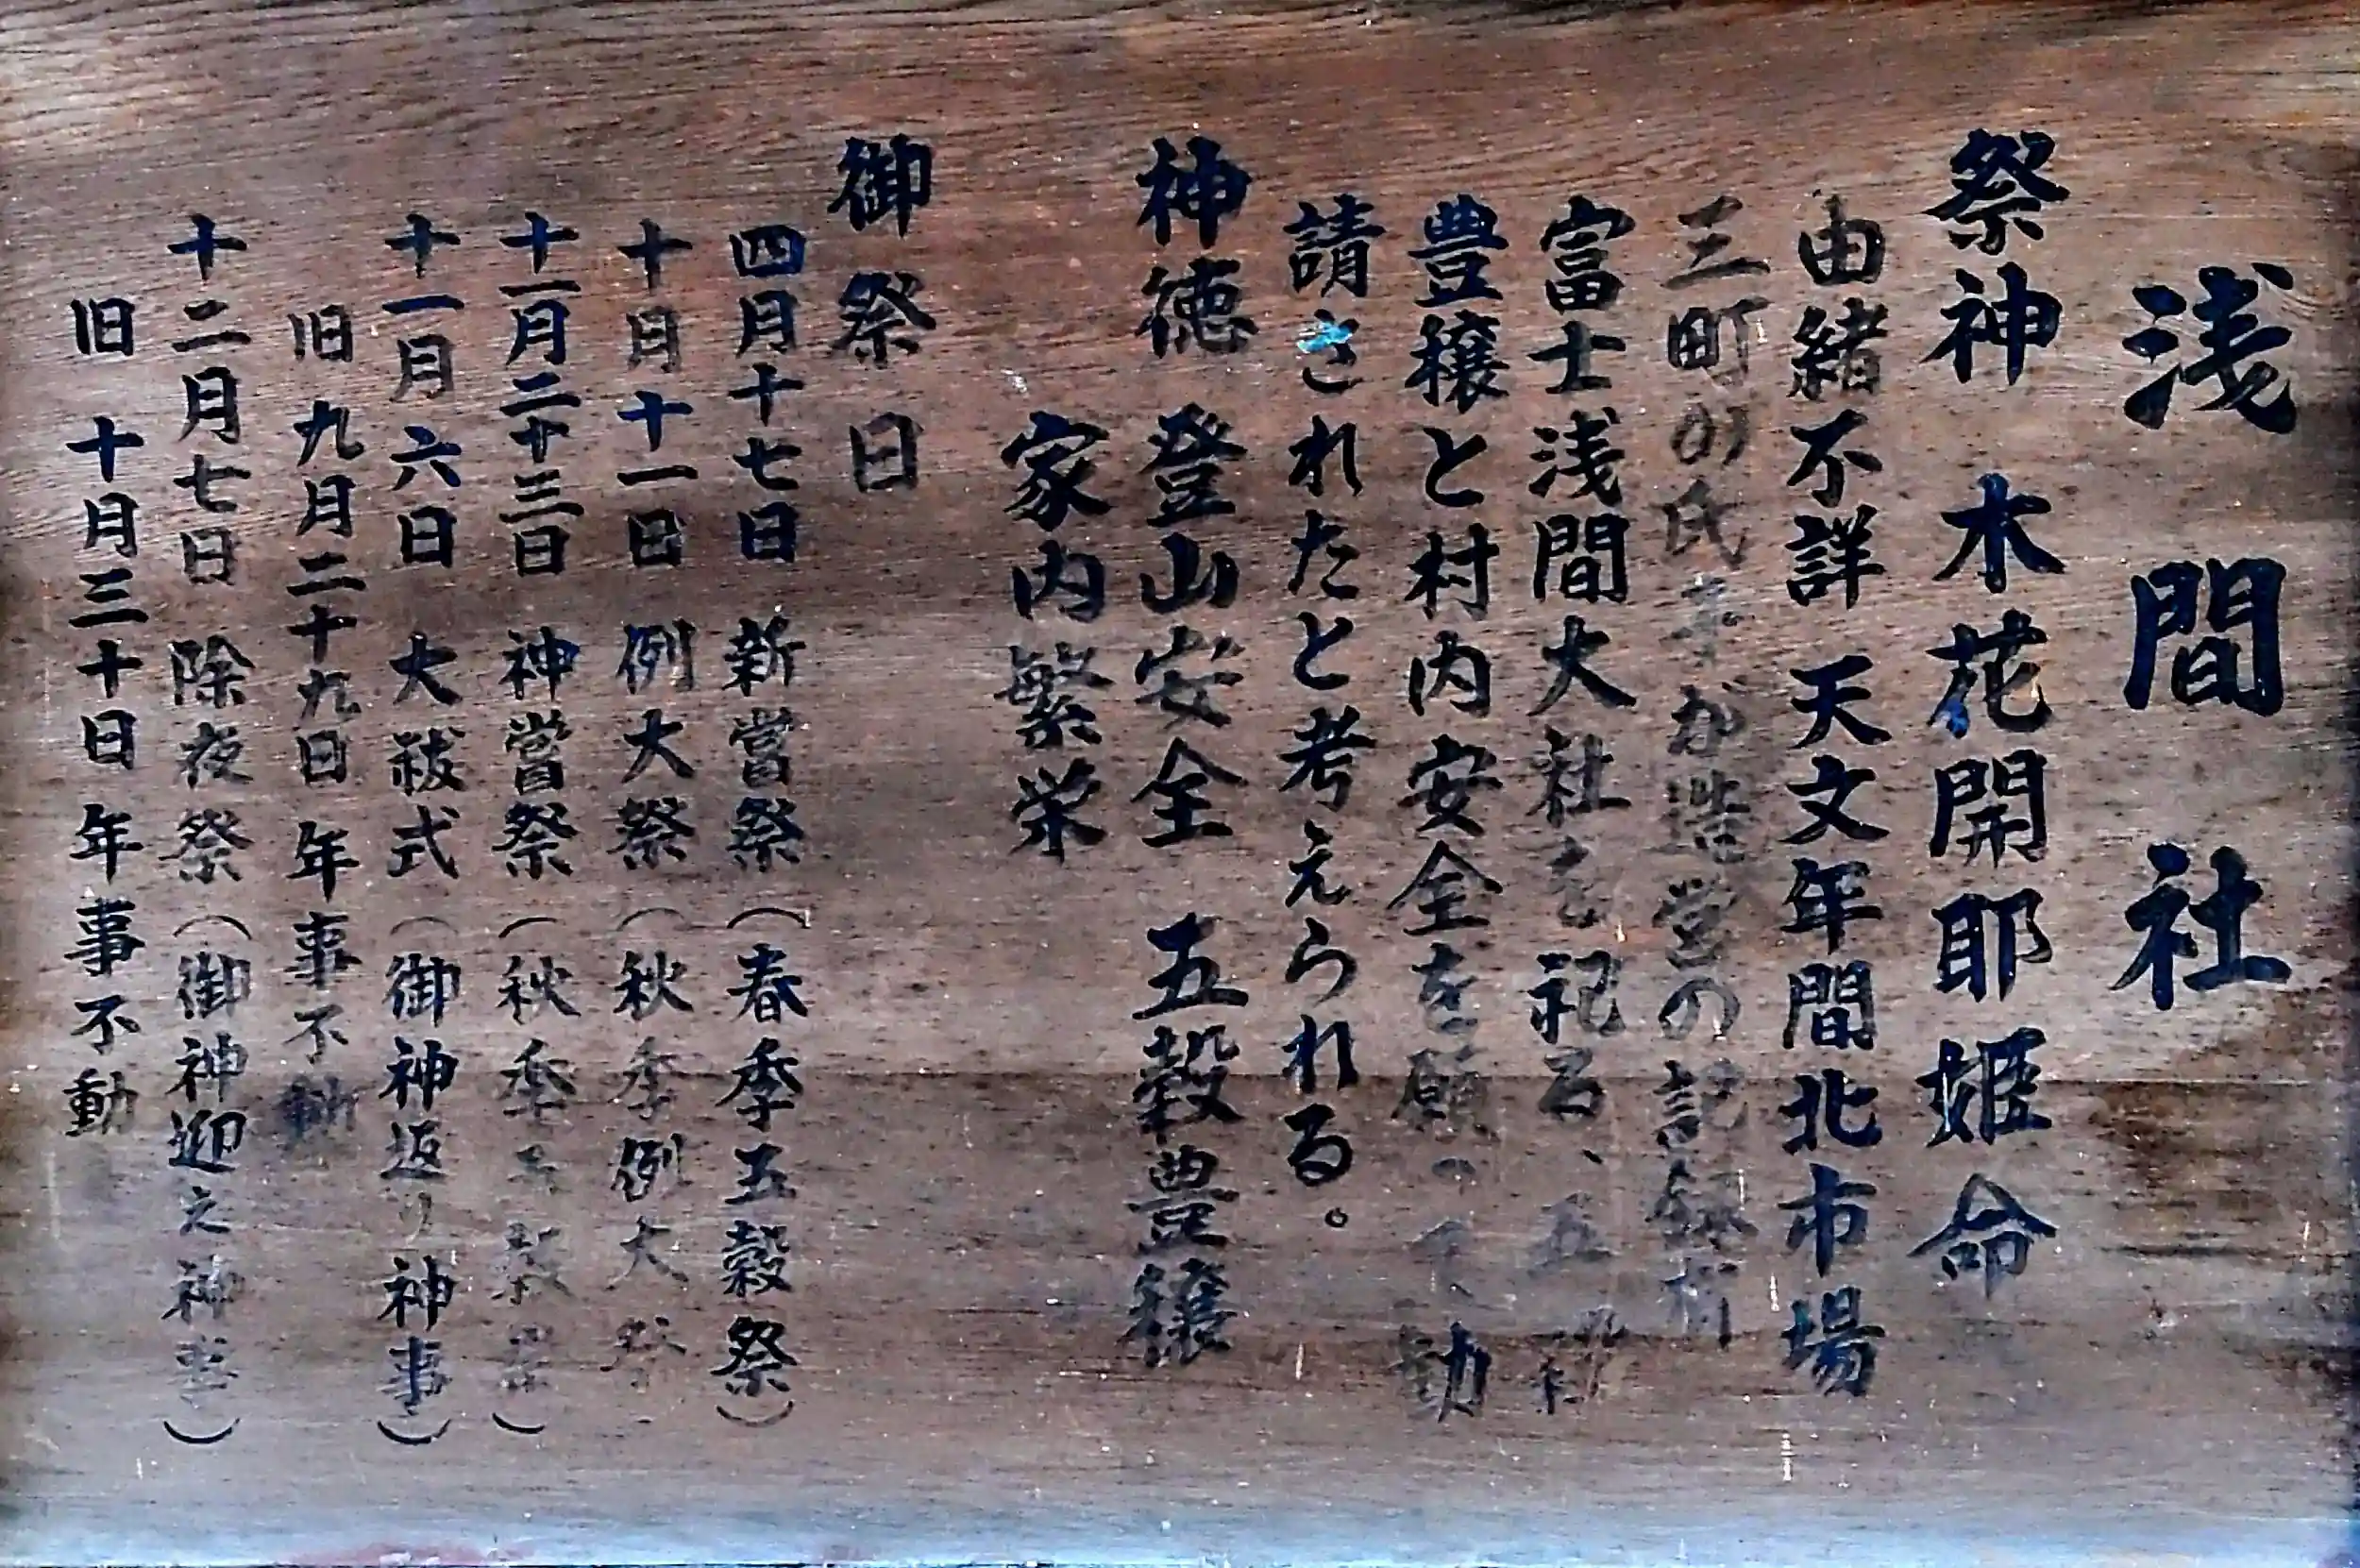 浅間社
祭神 木花開耶姫命
由緒不詳 天文年間北市場
三町の氏子が造営の記録有
富士浅間大社を祀る、五穀
豊穣と村内安全を願って勧
請されたと考えられる。
神徳 登山安全 五穀豊穣
家内繁栄
御祭日
四月十七日 新嘗祭（春季五穀祭）
十月十一日 例大祭（秋季例大祭
十一月二十三日 神嘗祭（秋季五穀祭）
十一月六日 大祓式（御神返り神事）
旧九月二十九日 年事不動
十二月七日 除夜祭（御神迎え神事）
旧 十月三十日 年事不動